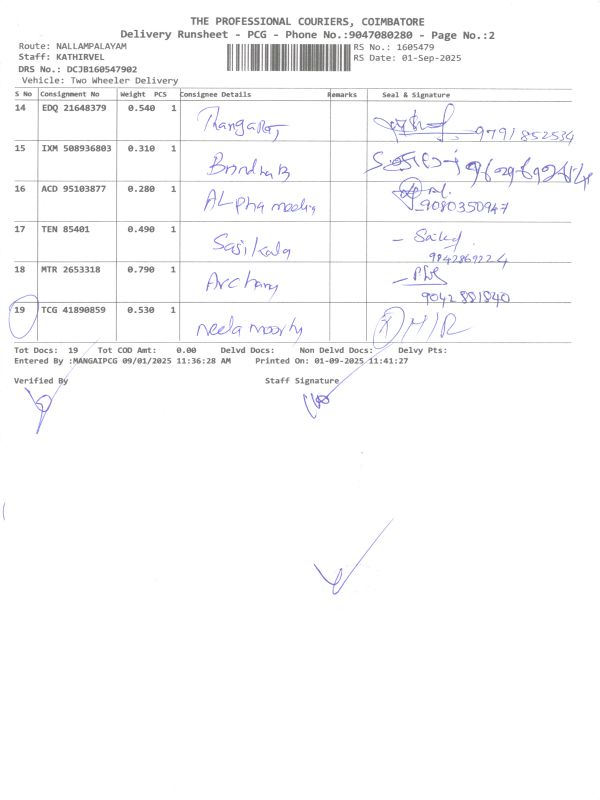 THE PROFESSIONAL COURIERS, COIMBATORE
Delivery Runsheet - PCG - Phone No.:9047080280 - Page No.:2
Route: NALLAMPALAYAM
Staff: KATHIRVEL
DRS No.: DCJB160547902
Vehicle: Two Wheeler Delivery
RS No.: 1605479
RS Date: 01-Sep-2025
S No Consignment No Weight PCS Consignee Details Remarks Seal & Signature
14 EDQ 21648379 0.540 1 Thangaraj 9791852534
15 IXM 508936803 0.310 1 Brindha B
16 ACD 95103877 0.280 1 ALpha 9080350947
17 TEN 85401 0.490 1 Sasikala
18 MTR 2653318 0.790 1 9042881840
19 TCG 41890859 0.530 1 neela moorty
Tot Docs: 19 Tot COD Amt: 0.00 Delvd Docs: Non Delvd Docs: Delvy Pts:
Entered By :MANGAIPCG 09/01/2025 11:36:28 AM Printed On: 01-09-2025 11:41:27
Verified By Staff Signature